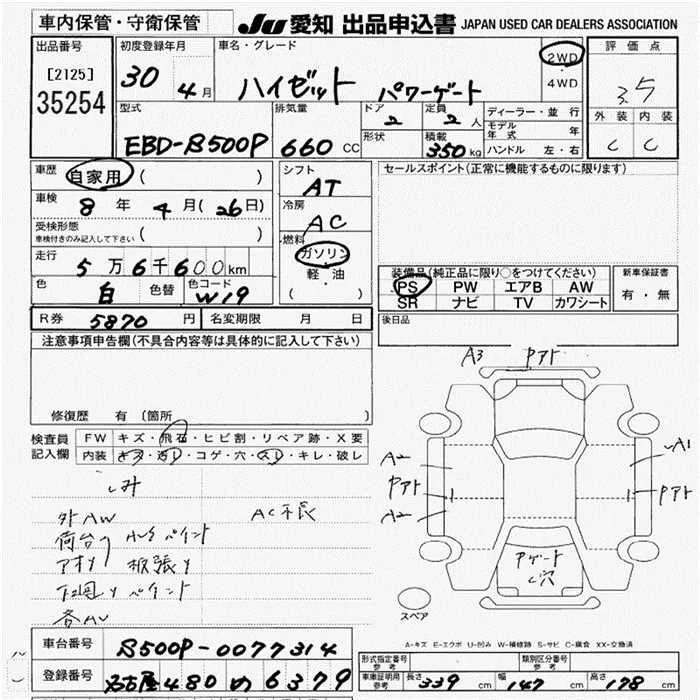 車内保管・守衛保管
JU 愛知 出品申込書 JAPAN USED CAR DEALERS ASSOCIATION
出品番号
[2125]
35254
初度登録年月
30 4月
車名・グレード
ハイゼット パワーゲート
2WD
・
4WD
評価点
3.5
外装 内装
C C
型式
EBD-S500P
排気量
660 CC
ドア
2
形状
定員
2 人
積載
350 kg
ディーラー・並行
モデル年式 年
ハンドル 左・右
車歴
自家用 ( )
車検
8年 4月(26日)
受検形態
車検付きのみ記入して下さい ( )
走行
5万6千600km
色 白 色替 色コード W19
シフト
AT
冷房
AC
燃料
ガソリン
軽・油
( )
セールスポイント(正常に機能するものに限ります)
装備品(純正品に限り○をつけてください)
PS PW エアB AW
SR ナビ TV カワシート
新車保証書
有・無
後日品
R券 5870円 名変期限 月 日
注意事項申告欄(不具合内容等は具体的に記入して下さい)
修復歴 有(箇所
検査員記入欄
FW キズ・飛石・ヒビ割・リペア跡・X要
内装 キズ・汚レ・コゲ・穴・スレ・キレ・破レ
しみ
外AW AC不良
荷台
アオリ 板張り
下回りペイント
各AU
A3 Pアト
A2 A1
Pアト Pアト
A2
Pゲート
穴
スペア
A-キズ E-エクボ U-凹み W-補修跡 S-サビ C-腐食 XX-交換済
車台番号 S500P-0077314
登録番号 名古屋 480 の 6379
形式指定番号 参考
類別区分番号 参考
車庫証明用参考 長さ 339 cm 幅 147 cm 高さ 178 cm